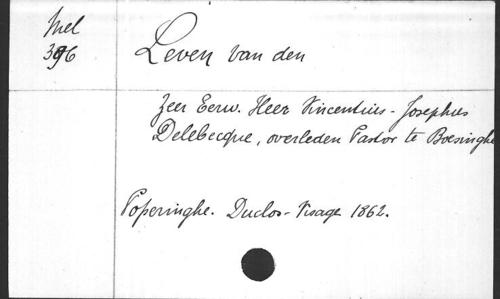 Mel
396
Leven van den
Zeer Eerw. Heer Vincentius-Josephus
Delebecque, overleden Pastor te Boesinghe
Poperinghe. Duclos-Visage 1862.